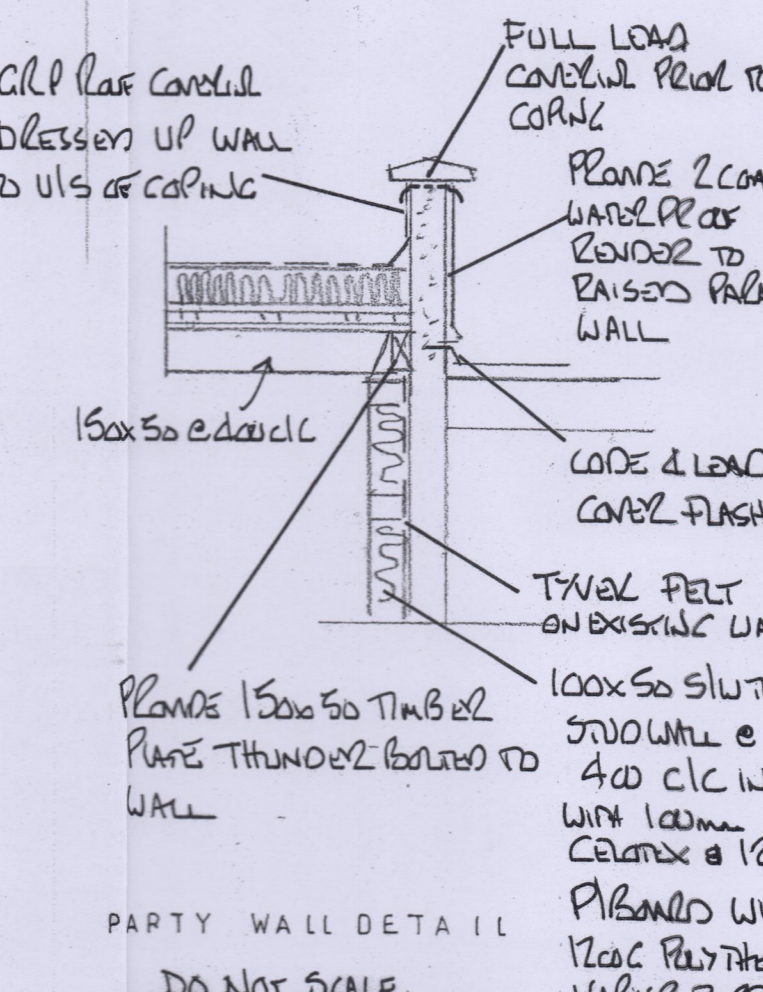 GRP ROOF COVERING
DRESSED UP WALL
TO U/S OF COPING
FULL LEAD
COVERING PRIOR TO
COPING
PROVIDE 2 COA
WATERPROOF
RENDER TO
RAISED PARA
WALL
150x50 @ 400 c/c
CODE 4 LEAD
COVER FLASH
TYVEK FELT
ON EXISTING WA
PROVIDE 150x50 TIMBER
PLATE THUNDER-BOLTED TO
WALL
100x50 S/W T
STUD WALL @
400 c/c IN
WITH 100mm
CELOTEX & 12
P/BOARD WI
1200G POLYTHE
PARTY WALL DETAIL
DO NOT SCALE